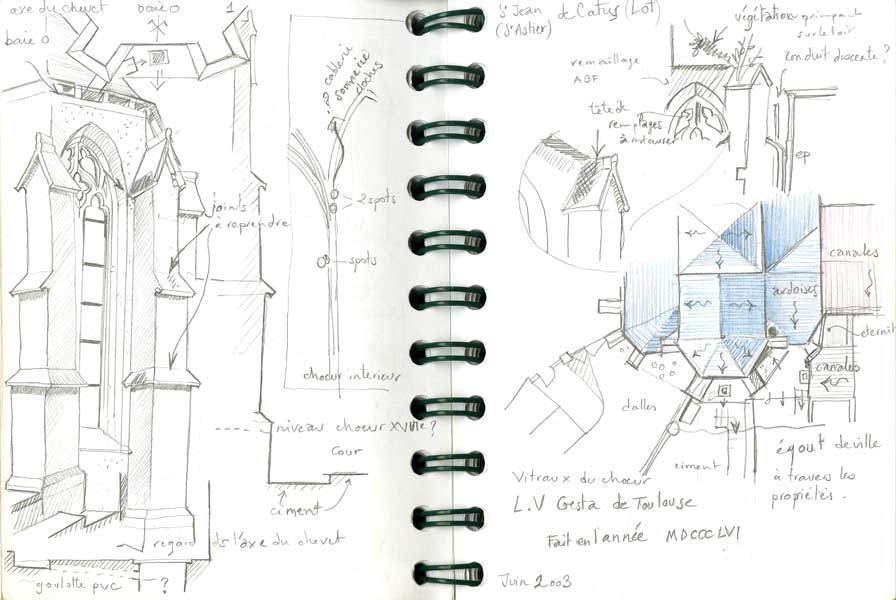 axe du chevet
baie 0
1
baie 0
joints
à reprendre
niveau choeur XVIIIe ?
cour
ciment
regard ds l'axe du chevet
goulotte pvc
?
cloches
2 spots
spots
choeur interieur
St Jean de Catus (Lot)
(St Astier)
végétation grimpante
sur le toit
conduit descente ?
remaillage
ABF
tête de
remplages
à restaurer
ep
canales
ardoises
eternit
canales
dalles
ciment
égout de ville
à travers les
propriétés.
Vitraux du choeur
L.V Gesta de Toulouse
Fait en l'année MDCCCLVI
Juin 2003